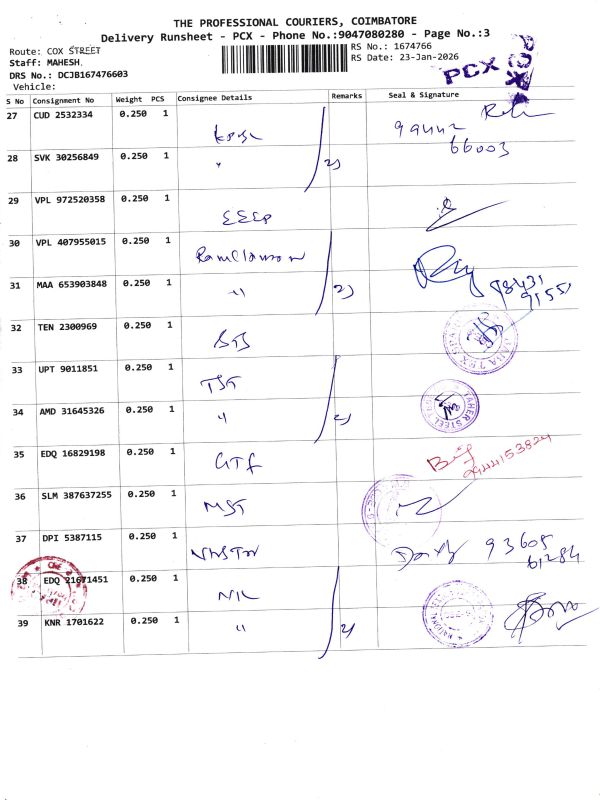 THE PROFESSIONAL COURIERS, COIMBATORE
Delivery Runsheet - PCX - Phone No.:9047080280 - Page No.:3
Route: COX STREET
RS No.: 1674766
Staff: MAHESH.
RS Date: 23-Jan-2026
DRS No.: DCJB167476603
PCX
PCX
Vehicle:
S No Consignment No Weight PCS Consignee Details Remarks Seal & Signature
27 CUD 2532334 0.250 1
99442
66003
28 SVK 30256849 0.250 1 " 2)
29 VPL 972520358 0.250 1
30 VPL 407955015 0.250 1
31 MAA 653903848 0.250 1 " 2)
98431
91551
32 TEN 2300969 0.250 1
33 UPT 9011851 0.250 1 TST
34 AMD 31645326 0.250 1 " 2)
TAHER STEEL
35 EDQ 16829198 0.250 1 GTF
9944153824
36 SLM 387637255 0.250 1 MST
37 DPI 5387115 0.250 1
93605
61284
38 EDQ 21671451 0.250 1 NIL
39 KNR 1701622 0.250 1 " 2)